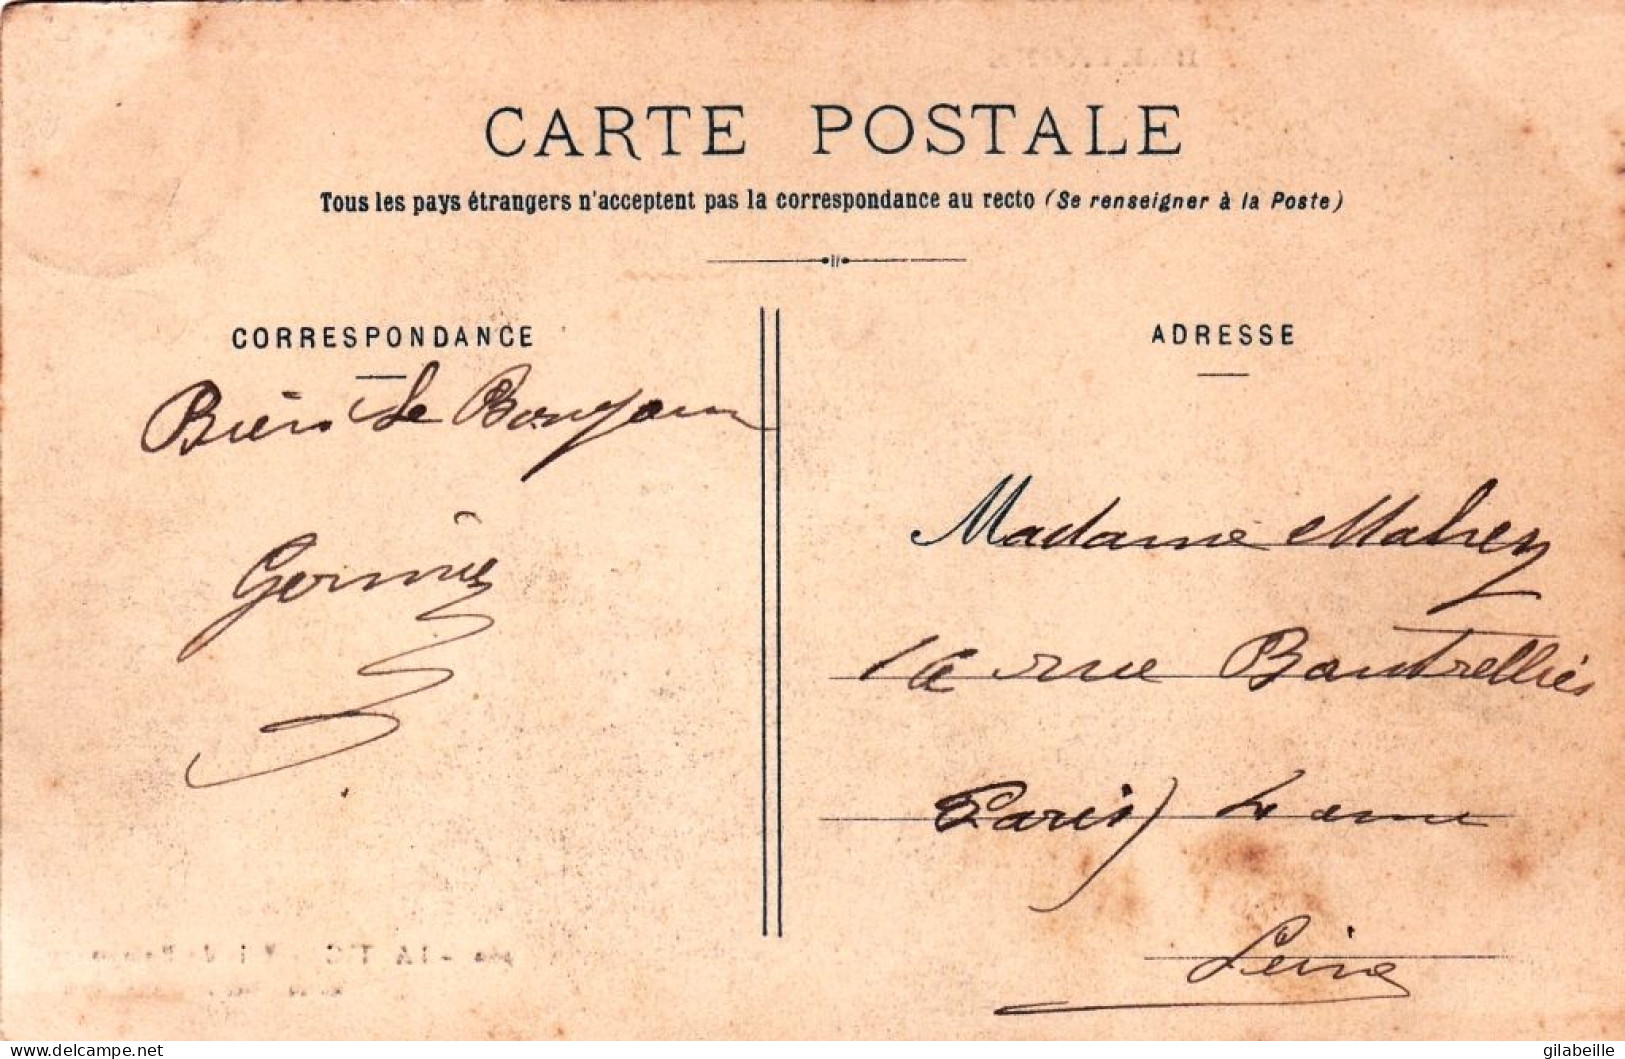 CARTE POSTALE
Tous les pays étrangers n'acceptent pas la correspondance au recto (Se renseigner à la Poste)
CORRESPONDANCE
Bien le Bonjour
ADRESSE
Madame Mahey
rue
Paris) 4 eme
Seine
delcampe.net
gilabeille